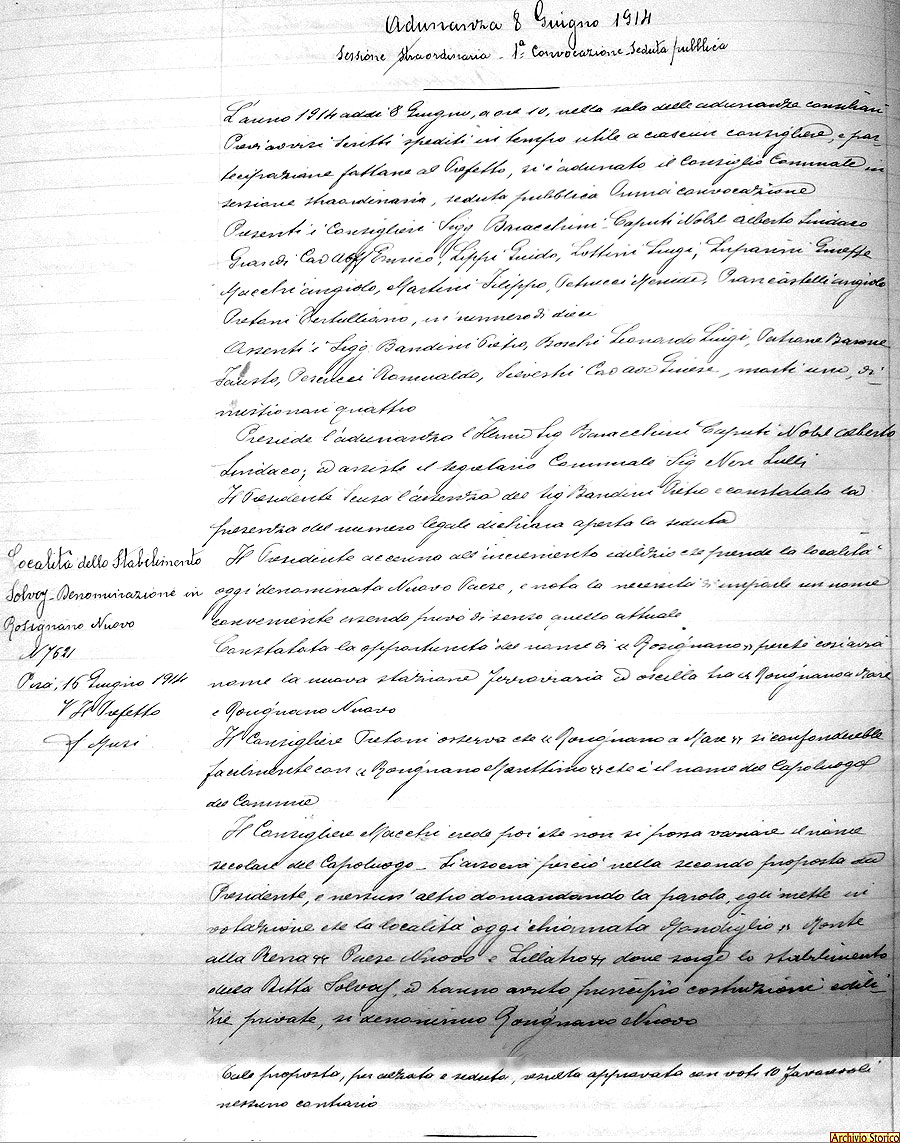 Adunanza 8 Giugno 1914
Sessione straordinaria - 1ª Convocazione - Seduta pubblica
L'anno 1914 addì 8 Giugno, a ore 10, nella sala delle adunanze consiliari
Previ avvisi scritti spediti in tempo utile a ciascun consigliere, e par-
tecipazione fattane al Prefetto, si è adunato il Consiglio Comunale in
sessione straordinaria, seduta pubblica Prima convocazione
Presenti i Consiglieri Sigg Baracchini-Caputi Nobil Alberto Sindaco
Grandi Cav Enrico, Lippi Guido, Lottini Luigi, Luparini Giuseppe
Macchi Angiolo, Martini Filippo, Petrucci, Piancastelli Angiolo
Pretoni Tertulliano, in numero di dieci
Assenti i Sigg Bandini Pietro, Boschi Leonardo Luigi, Patrone Barone
Fausto, Romualdo, Silvestri Cav avv, morti uno, di-
missionari quattro
Presiede l'adunanza l'Illmo Sig Baracchini Caputi Nobil Alberto
Sindaco, ed assiste il segretario Comunale Sig Neri Lulli
Il Presidente scusa l'assenza del Sig Bandini Pietro e constatata la
presenza del numero legale dichiara aperta la seduta
Località dello Stabilimento
Solvay - Denominazione in
Rosignano Nuovo
N 7521
Pisa, 16 Giugno 1914
V Il Prefetto
Il Presidente accenna all'incremento edilizio che prende la località
oggi denominata Nuovo Paese, e nota la necessità di imporle un nome
conveniente essendo privo di senso quello attuale
Constatata la opportunità del nome di "Rosignano" perché così avrà
nome la nuova stazione ferroviaria ed oscilla tra "Rosignano a Mare
e Rosignano Nuovo
Il Consigliere Pretoni osserva che "Rosignano a Mare" si confonderebbe
facilmente con "Rosignano Marittimo" che è il nome del Capoluogo
del Comune
Il Consigliere Macchi crede poi che non si possa variare il nome
secolare del Capoluogo - Si associa perciò nella seconda proposta del
Presidente, e nessun'altro domandando la parola, egli mette in
votazione che la località oggi chiamata Mondiglio" Monte
alla Rena" Paese Nuovo e Lillatro" dove sorge lo stabilimento
della Ditta Solvay, ed hanno avuto principio costruzioni edili-
zie private, si denomini Rosignano Nuovo
Tale proposta, per alzata e seduta, resulta approvata con voti 10 favorevoli
nessuno contrario
Archivio Storico